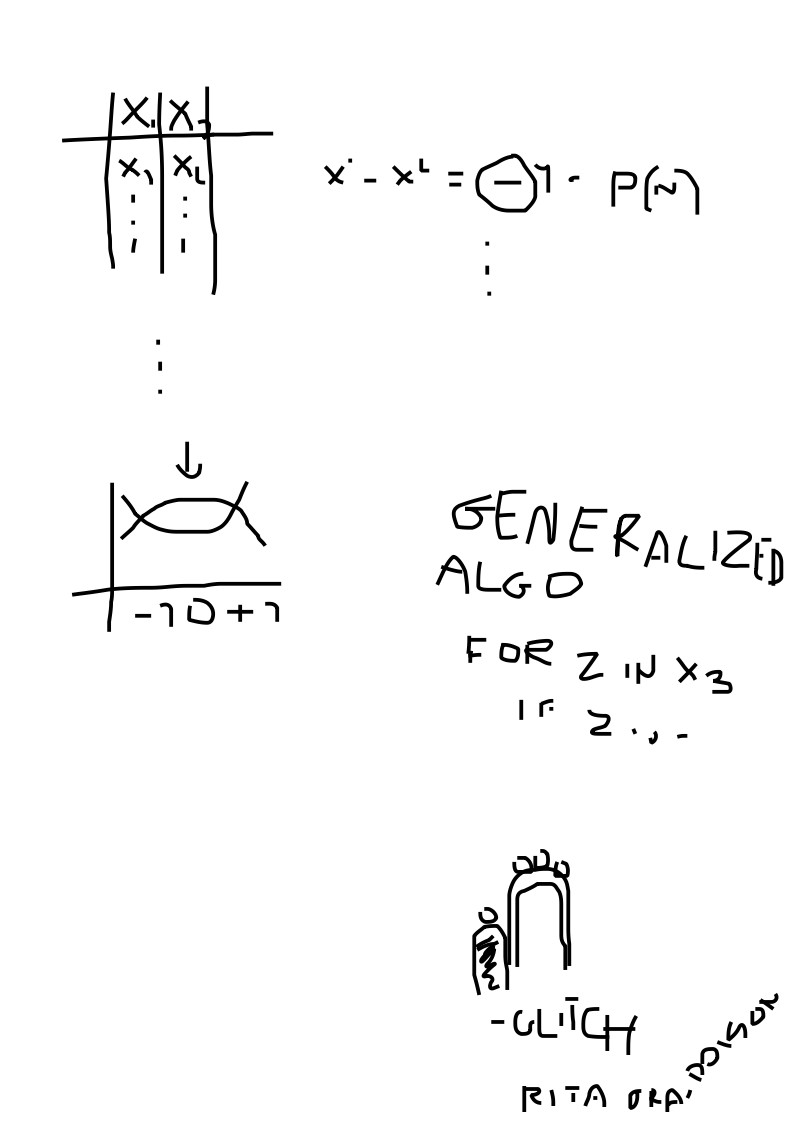 X₁ X₂
x₁ x₂
x - x = -1 · P(N)
-1 0 +1
GENERALIZED
ALGO
FOR Z IN X₃
IF Z ...
-GLITCH
RITA ORA. POISON